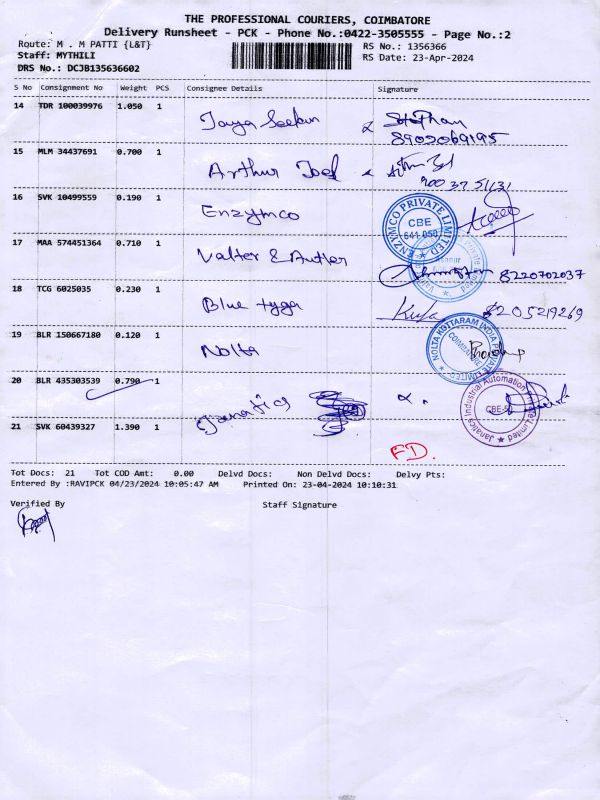 THE PROFESSIONAL COURIERS, COIMBATORE
Delivery Runsheet - PCK - Phone No.:0422-3505555 - Page No.:2
Route: M . M PATTI {L&T}
RS No.: 1356366
Staff: MYTHILI
RS Date: 23-Apr-2024
DRS No.: DCJB135636602
S No Consignment No Weight PCS Consignee Details Signature
14 TDR 100039976 1.050 1
Jaya
8903069195
15 MLM 34437691 0.700 1
Arthur Joel
16 SVK 10499559 0.190 1
Enzymco
ENZYMCO PRIVATE LIMITED
CBE
641 050
17 MAA 574451364 0.710 1
Valter & Autler
8220702037
18 TCG 6025035 0.230 1
Blue tyga
8205219269
19 BLR 150667180 0.120 1
Nolta
NOLTA KOTTARAM INDIA PRIVATE LIMITED
20 BLR 435303539 0.790 1
Janatics
Janatics Industrial Automation Private Limited
21 SVK 60439327 1.390 1
FD.
Tot Docs: 21 Tot COD Amt: 0.00 Delvd Docs: Non Delvd Docs: Delvy Pts:
Entered By :RAVIPCK 04/23/2024 10:05:47 AM Printed On: 23-04-2024 10:10:31
Verified By Staff Signature